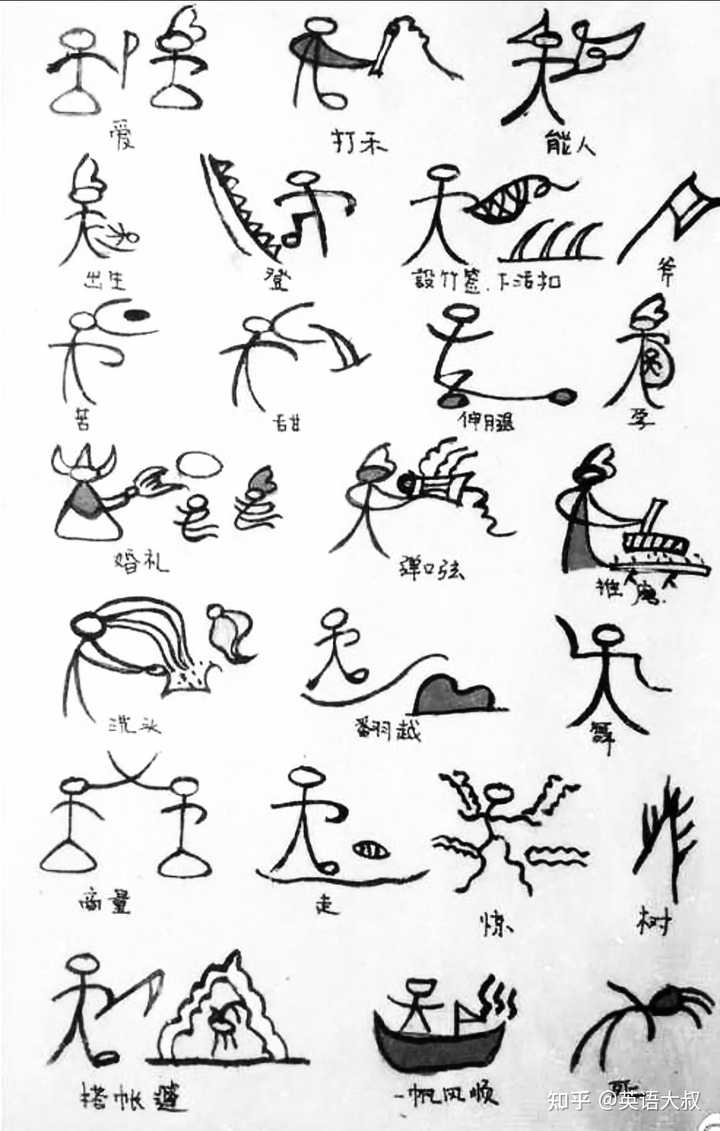 爱 打禾 能人
出生 登 設竹签.下活扣 斧
苦 甜 伸腿 孕
婚礼 弹口弦 推磨.
洗头 翻越 舞
商量 走 惊 树
搭帐篷 一帆风顺 死
知乎 @英语大叔